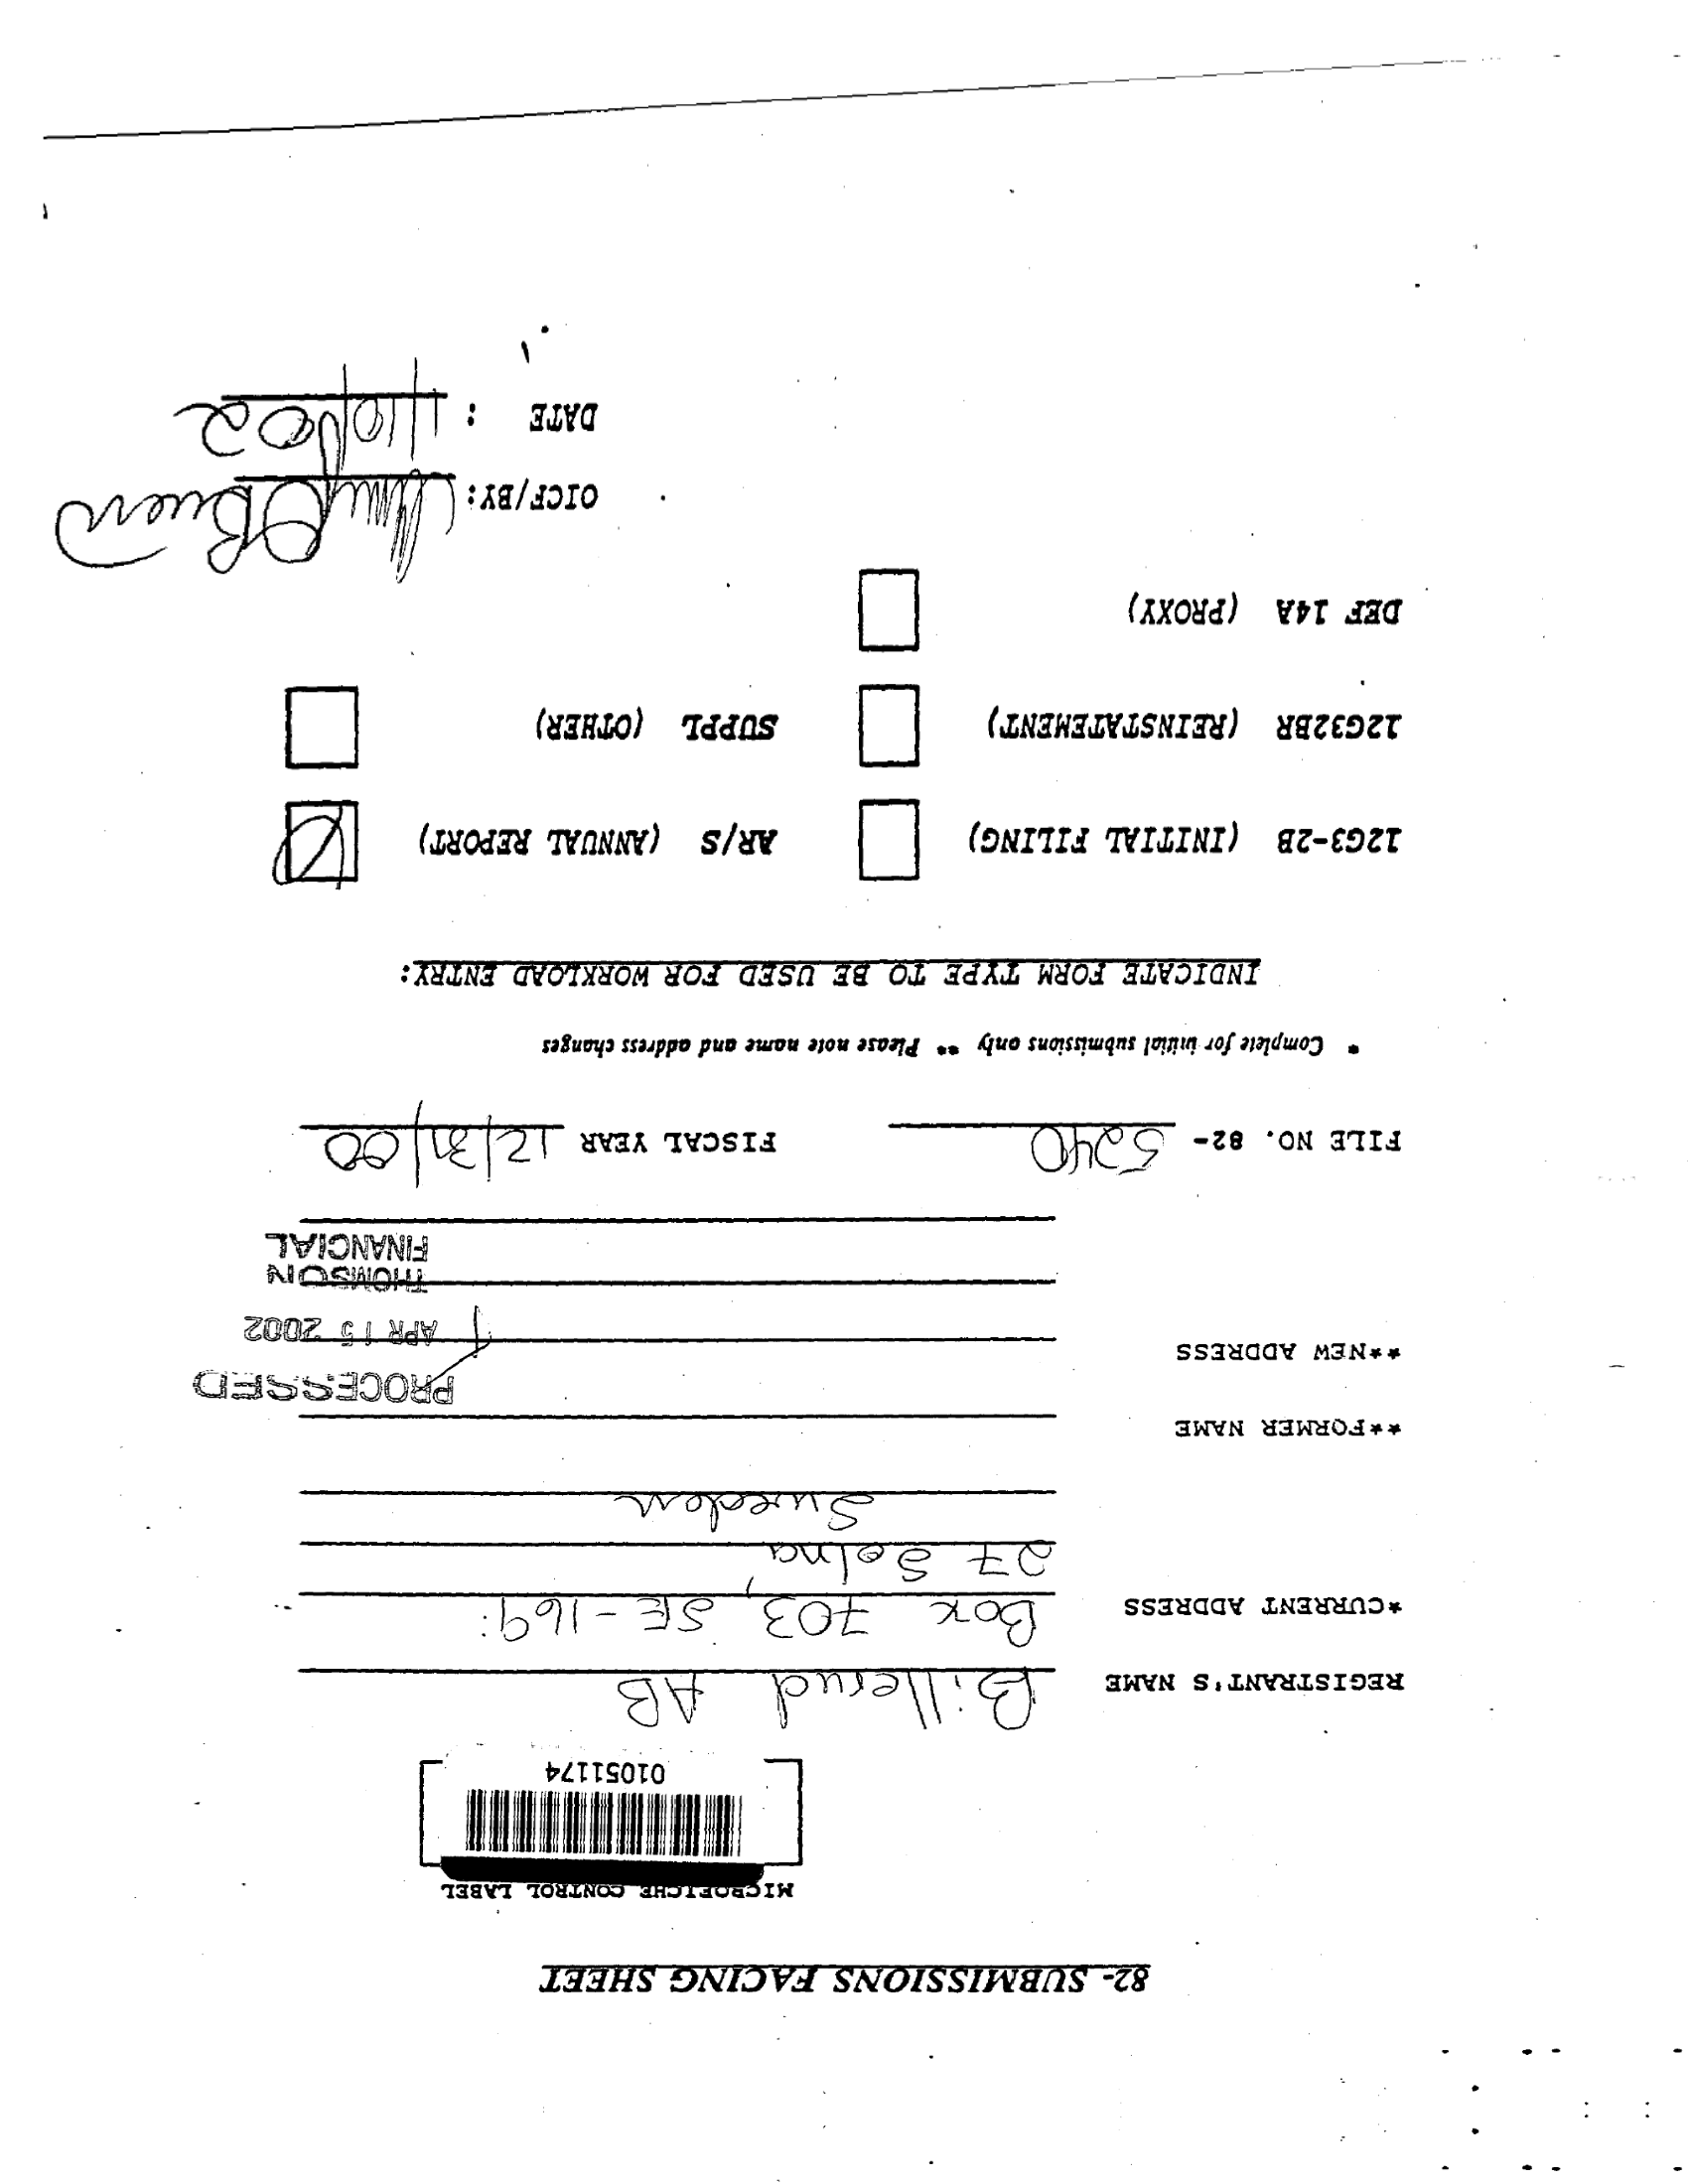 82- SUBMISSIONS FACING SHEET
MICROFICHE CONTROL LABEL
01051174
REGISTRANT'S NAME Billerud AB
*CURRENT ADDRESS Box 703, SE-169
27 Solna
Sweden
**FORMER NAME
PROCESSED
**NEW ADDRESS
APR 15 2002
THOMSON
FINANCIAL
FILE NO. 82- 5240 FISCAL YEAR 12/31/00
* Complete for initial submissions only ** Please note name and address changes
INDICATE FORM TYPE TO BE USED FOR WORKLOAD ENTRY:
12G3-2B (INITIAL FILING) AR/S (ANNUAL REPORT)
12G32BR (REINSTATEMENT) SUPPL (OTHER)
DEF 14A (PROXY)
OICF/BY:
DATE : 1/10/02